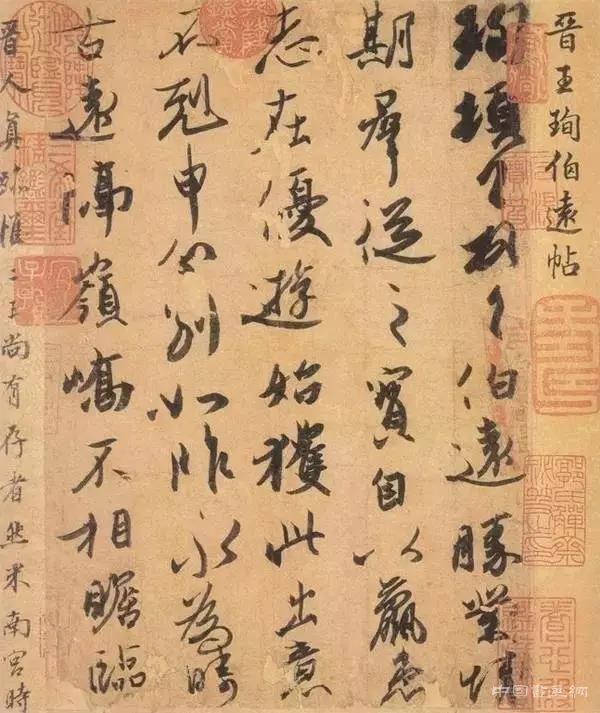 晉王珣伯遠帖
珣頓首頓首伯遠勝業情
期羣從之寶自以羸患
志在優遊始獲此出意
不剋申分別如昨永為疇
古遠隔嶺嶠不相瞻臨
晉人真跡惟二王尚有存者然米南宮時
中國書畫網